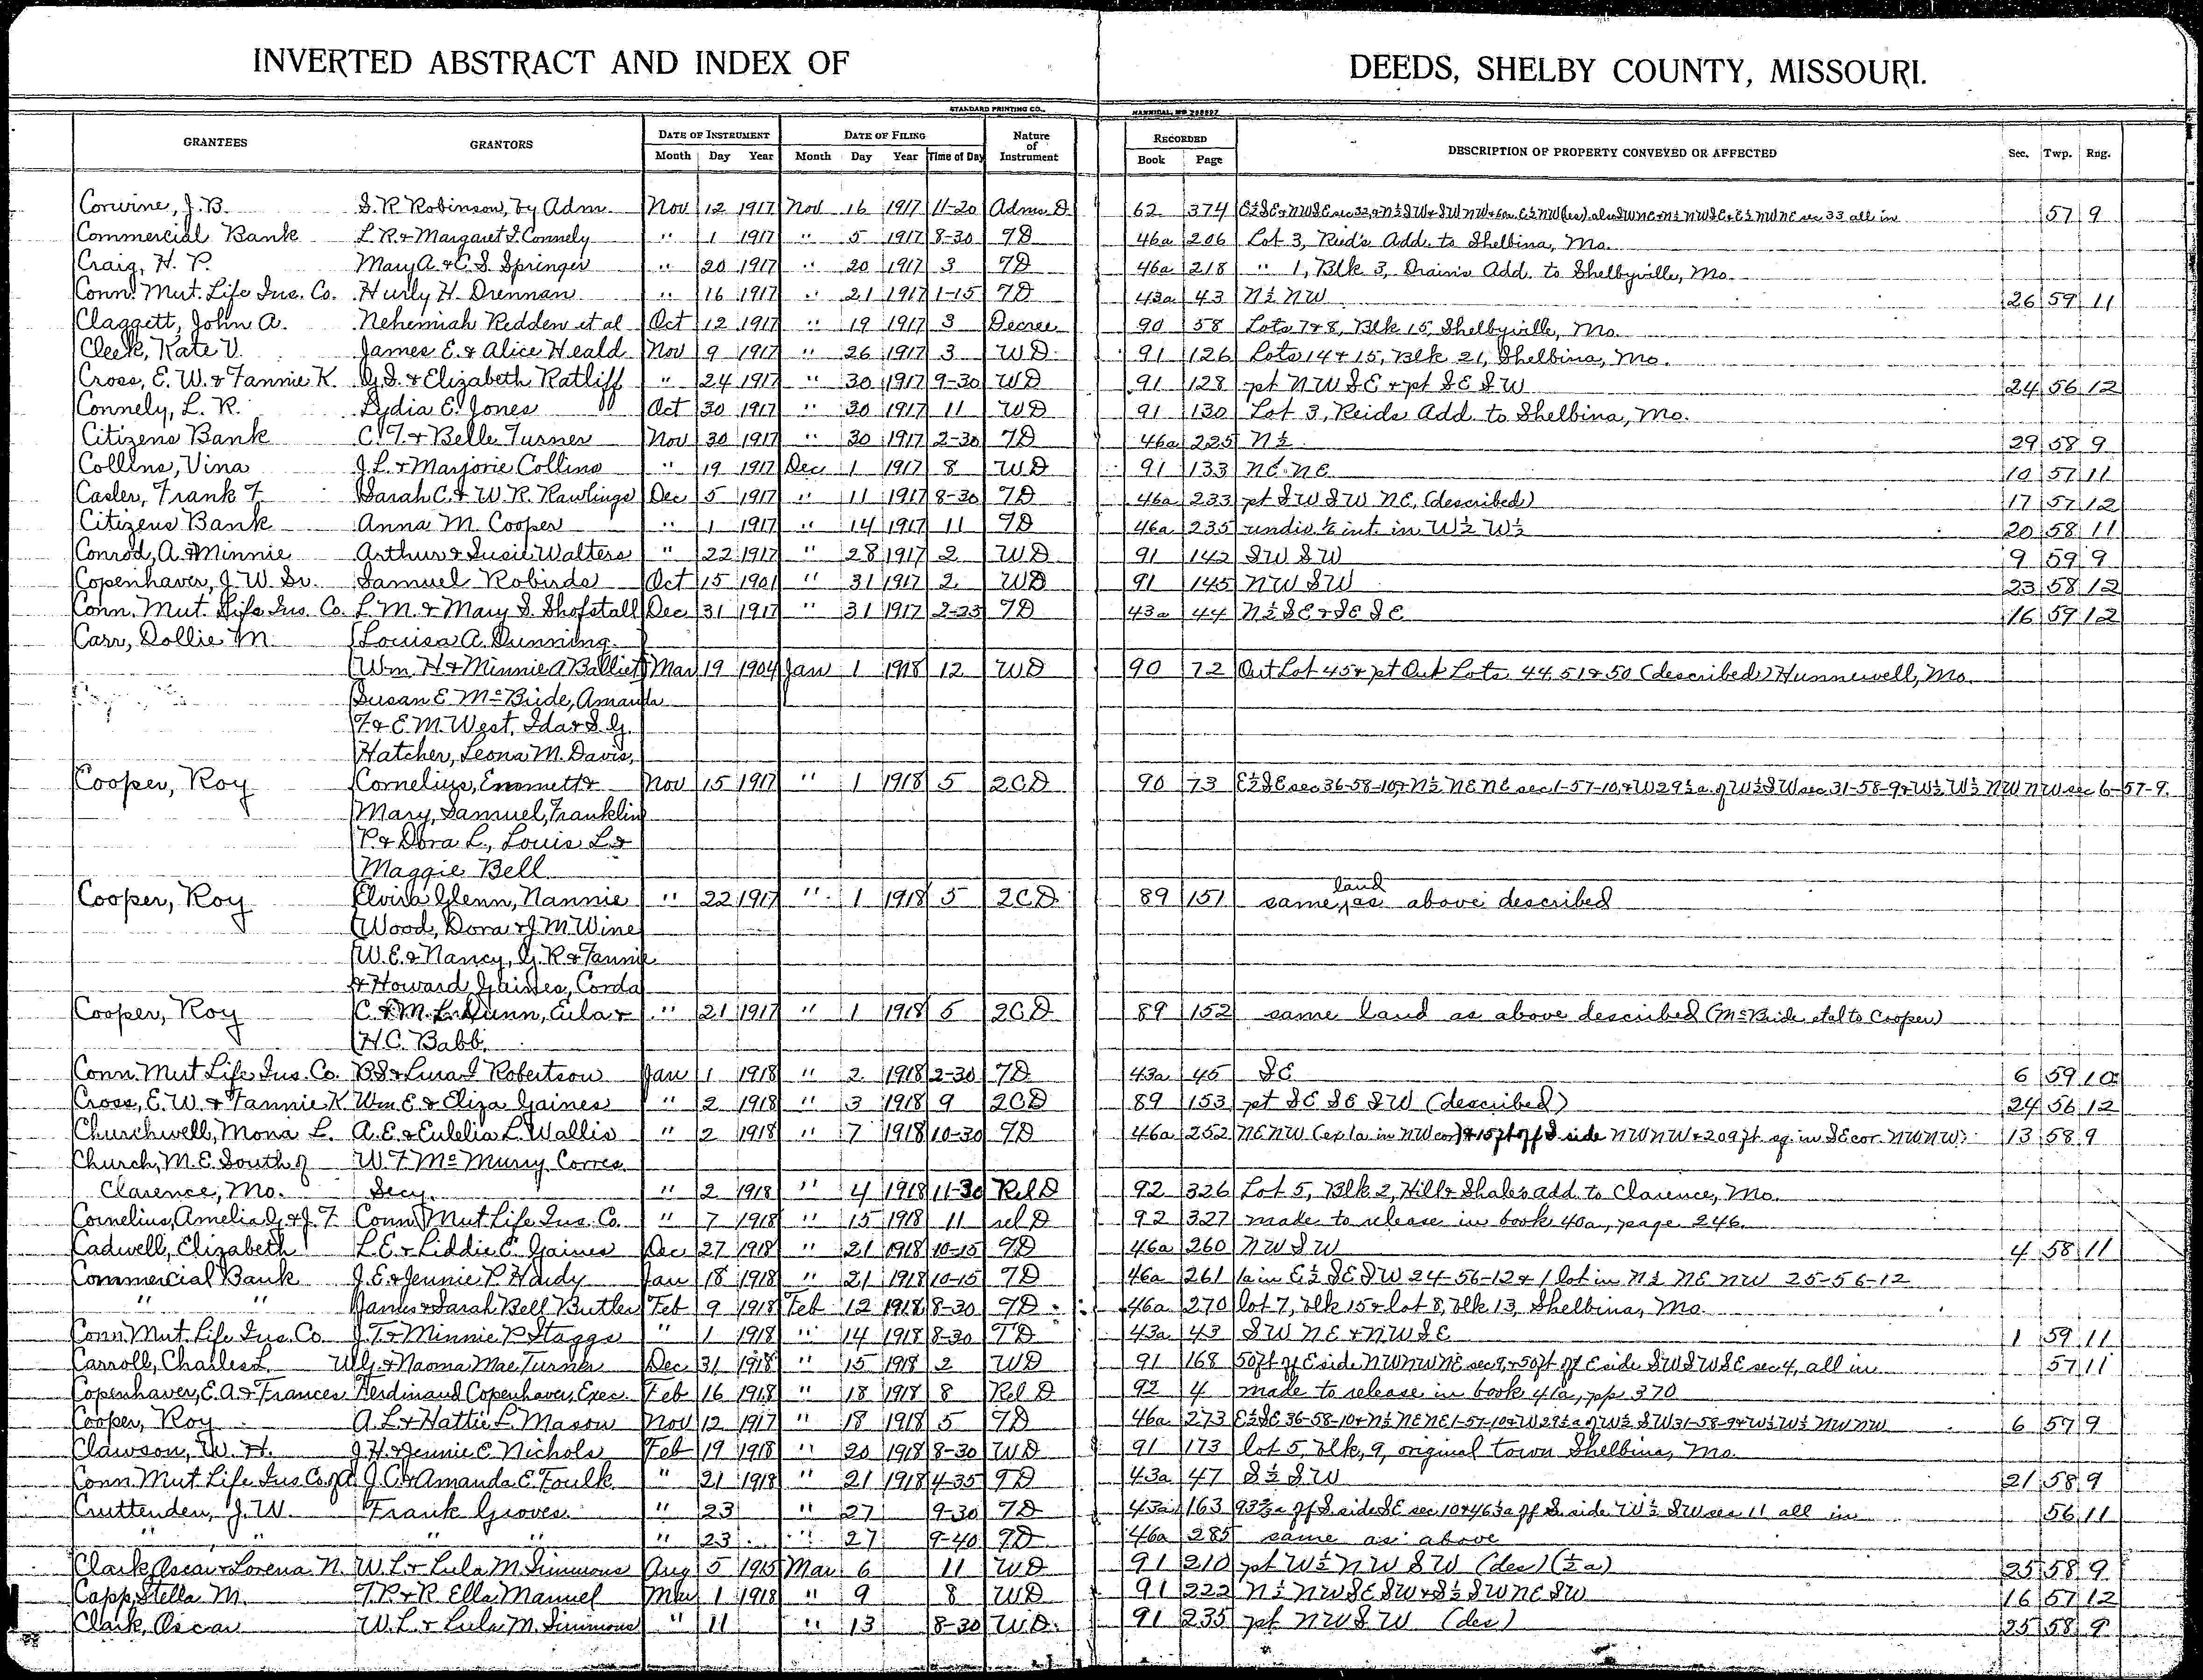 INVERTED ABSTRACT AND INDEX OF DEEDS, SHELBY COUNTY, MISSOURI.
STANDARD PRINTING CO., HANNIBAL, MO
GRANTEES GRANTORS DATE OF INSTRUMENT DATE OF FILING Nature of Instrument RECORDED DESCRIPTION OF PROPERTY CONVEYED OR AFFECTED Sec. Twp. Rng.
Month Day Year Month Day Year Time of Day Book Page
Corwine, J. B. S. R. Robinson, by Adm. Nov 12 1917 Nov 16 1917 11-20 Adms D 62 374 E½ SE & NWSE sec 32, & N½ SW & SW NW & E½ NW (des) also SWNE & N½ NWSE & E½ NWNE sec 33 all in 57 9
Commercial Bank L. R. & Margaret I. Connely " 1 1917 " 5 1917 8-30 TD 46a 206 Lot 3, Reid's Add. to Shelbina, Mo.
Craig, H. P. Mary A. & C. S. Springer " 20 1917 " 20 1917 3 TD 46a 218 " 1, Blk 3, Drain's Add. to Shelbyville, Mo.
Conn. Mut. Life Ins. Co. Hurly H. Drennan " 16 1917 " 21 1917 1-15 TD 43a 43 N½ NW 26 59 11
Claggett, John A. Nehemiah Redden et al Oct 12 1917 " 19 1917 3 Decree 90 58 Lots 7 & 8, Blk 15, Shelbyville, Mo.
Cleek, Kate V. James E. & Alice Heald Nov 9 1917 " 26 1917 3 WD 91 126 Lots 14 & 15, Blk 21, Shelbina, Mo.
Cross, E. W. & Fannie K. G. S. & Elizabeth Ratliff " 24 1917 " 30 1917 9-30 WD 91 128 pt NW SE & pt SE SW 24 56 12
Connely, L. R. Lydia E. Jones Oct 30 1917 " 30 1917 11 WD 91 130 Lot 3, Reids Add. to Shelbina, Mo.
Citizens Bank C. T. & Belle Turner Nov 30 1917 " 30 1917 2-30 TD 46a 225 N½ 29 58 9
Collins, Vina J. L. & Marjorie Collins " 19 1917 Dec 1 1917 8 WD 91 133 NE NE 10 57 11
Casler, Frank F. Sarah C. & W. R. Rawlings Dec 5 1917 " 11 1917 8-30 TD 46a 233 pt SW SW NE, (described) 17 57 12
Citizens Bank Anna M. Cooper " 1 1917 " 14 1917 11 TD 46a 235 undiv int. in W½ W½ 20 58 11
Conrod, A. & Minnie Arthur & Susie Walters " 22 1917 " 28 1917 2 WD 91 142 SW SW 9 59 9
Copenhaver, J. W. Sr. Samuel Robirds Oct 15 1901 " 31 1917 2 WD 91 145 NW SW 23 58 12
Conn. Mut. Life Ins. Co. L. M. & Mary S. Shofstall Dec 31 1917 " 31 1917 2-23 TD 43a 44 N½ SE & SE SE 16 59 12
Carr, Dollie M. Louisa A. Dunning
Wm. H & Minnie A Balliet Mar 19 1904 Jan 1 1918 12 WD 90 72 Out Lot 45 & pt Out Lots 44, 51 & 50 (described) Hunnewell, Mo.
Susan E. McBride, Amanda
F. & E. M. West, Ida & S. G.
Hatcher, Leona M. Davis,
Cooper, Roy Cornelius, Emmett & Nov 15 1917 " 1 1918 5 2CD 90 73 E½ SE sec 36-58-10, & N½ NE NE sec 1-57-10, & W 29½a. of W½ SW sec 31-58-9 & W½ W½ NW NW sec 6-57-9.
Mary, Samuel, Franklin
P. & Dora L., Louis L. &
Maggie Bell
Cooper, Roy Elvira Glenn, Nannie " 22 1917 " 1 1918 5 2CD 89 151 same land as above described
Wood, Dora & J. M. Wine
W. E. & Nancy, G. R. & Fannie
& Howard Gaines, Corda
Cooper, Roy C. & M. L. Dunn, Eula & " 21 1917 " 1 1918 5 2CD 89 152 same land as above described (McBride etal to Cooper)
H. C. Babb.
Conn. Mut Life Ins. Co. B. S & Lura I Robertson Jan 1 1918 " 2 1918 2-30 TD 43a 45 SE 6 59 10
Cross, E. W. & Fannie K Wm. E. & Eliza Gaines " 2 1918 " 3 1918 9 2CD 89 153 pt SE SE SW (described) 24 56 12
Churchwell, Mona L. A. E. & Eulelia L. Wallis " 2 1918 " 7 1918 10-30 TD 46a 252 NE NW (ex 1a in NW cor) & 15 ft off S side NWNW & 209 ft sq in SE cor NWNW 13 58 9
Church, M. E. South of W. F. McMurry Corres.
Clarence, Mo. Secy. " 2 1918 " 4 1918 11-30 Rel D 92 326 Lot 5, Blk 2, Hill & Shales add. to Clarence, Mo.
Cornelius, Amelia G. & J. F Conn Mut Life Ins. Co. " 7 1918 " 15 1918 11 rel D 92 327 made to release in book 40a, page 246.
Cadwell, Elizabeth L. E. & Liddie C. Gaines Dec 27 1918 " 21 1918 10-15 TD 46a 260 NW SW 4 58 11
Commercial Bank J. E. & Jennie P. Hardy Jan 18 1918 " 21 1918 10-15 TD 46a 261 1a in E½ SE SW 24-56-12 & 1 lot in N½ NE NW 25-56-12
" " James & Sarah Bell Butler Feb 9 1918 Feb 12 1918 8-30 TD 46a 270 lot 7, blk 15 & lot 8, blk 13, Shelbina, Mo.
Conn Mut. Life Ins. Co. J. T. & Minnie P. Staggs " 1 1918 " 14 1918 8-30 TD 43a 43 SW NE & NW SE 1 59 11
Carroll, Charles L. W. G. & Naoma Mae Turner Dec 31 1918 " 15 1918 2 WD 91 168 50 ft off E side NWNWNE sec 9, & 50 ft off E side SWSWSE sec 4, all in 57 11
Copenhaver, E. A. & Frances Ferdinand Copenhaver, Exec. Feb 16 1918 " 18 1918 8 Rel D 92 4 made to release in book 41a, pp 370
Cooper, Roy A. L. & Hattie L. Mason Nov 12 1917 " 18 1918 5 TD 46a 273 E½ SE 36-58-10 & N½ NE NE 1-57-10 & W 29½ a of W½ SW 31-58-9 & W½ W½ NW NW 6 57 9
Clawson, W. H. J. H. & Jennie E. Nichols Feb 19 1918 " 20 1918 8-30 WD 91 173 lot 5, blk, 9, original town Shelbina, Mo.
Conn Mut Life Ins Co. J. C. & Amanda E. Foulk " 21 1918 " 21 1918 4-35 TD 43a 47 S½ SW 21 58 9
Cruttenden, J. W. Frank Groves " 23 " 27 9-30 TD 43a 163 a off S side SE sec 10 & 46 a off S. side W½ SW sec 11 all in 56 11
" " " " " 23 " 27 9-40 TD 46a 285 same as above
Clark, Oscar & Lorena N. W. L. & Lula M. Simmons Aug 5 1915 Mar 6 11 WD 91 210 pt W½ NW SW (des) (½ a) 25 58 9
Capp, Stella M. T. P. & R. Ella Manuel Mar 1 1918 " 9 8 WD 91 222 N½ NW SE SW & S½ SW NE SW 16 57 12
Clark, Oscar W. L. & Lula M. Simmons " 11 " 13 8-30 W.D. 91 235 pt NW SW (des) 25 58 9